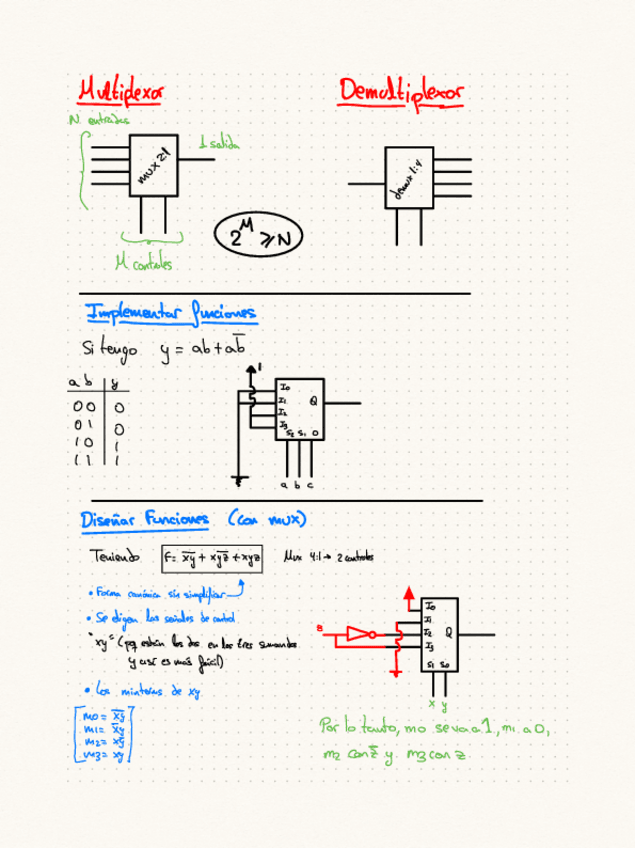 Multiplexor
Demultiplexor
N entradas
1 salida
mux 2:1
demux 1:4
2^M ≥ N
M controles
Implementar funciones
Si tengo y = ab + ab̅
a b y
0 0 0
0 1 0
1 0 1
1 1 1
1
I0
I1
I2
I3
Q
S2 S1 0
a b c
Diseñar Funciones (con mux)
Teniendo F= x̅y̅ + xyz̅ + xyz Mux 4:1 → 2 controles
• Forma canónica sin simplificar
• Se eligen las señales de control
"xy" (pq están los dos en los tres sumandos
y así es más fácil)
• Los minterms de xy
m0 = x̅y̅
m1 = x̅y
m2 = xy̅
m3 = xy
z
I0
I1
I2
I3
Q
S1 S0
x y
Por lo tanto, m0 se va a 1, m1 a 0,
m2 con z̅ y m3 con z